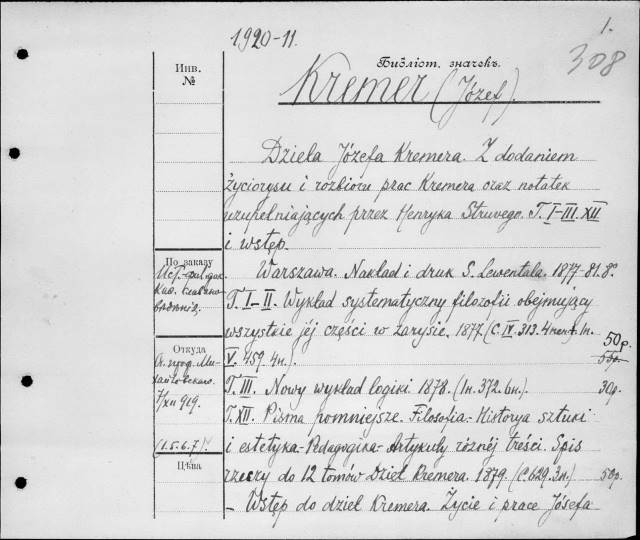 1920-11.
1.
308
Библіот. значекъ.
Инв.
№
Kremer (Józef).
Dzieła Józefa Kremera. Z dodaniem
życiorysu i rozbioru prac Kremera oraz notatek
uzupełniających przez Henryka Struvego. T. I-III. XII
i wstęp.
По заказу
Warszawa. Nakład i druk S. Lewentala. 1877-81. 8º
T. I-II. Wykład systematyczny filozofii obejmujący
wszystkie jéj części w zarysie. 1877. (C. IV. 313. 4 1n.
50р.
Откуда
V. 459. 4n.).
55р.
T. III. Nowy wykład logiki 1878. (1n. 372. 6n.).
30р.
7/XII 919.
T. XII. Pisma pomniejsze. Filosofia-Historya sztuki
(1.5.6.7.)
i estetyka-Pedagogika-Artykuły różnéj treści. Spis
Цѣна
rzeczy do 12 tomów Dzieł Kremera. 1879. (C. 629. 3n.)
50р.
- Wstęp do dzieł Kremera. Życie i prace Józefa